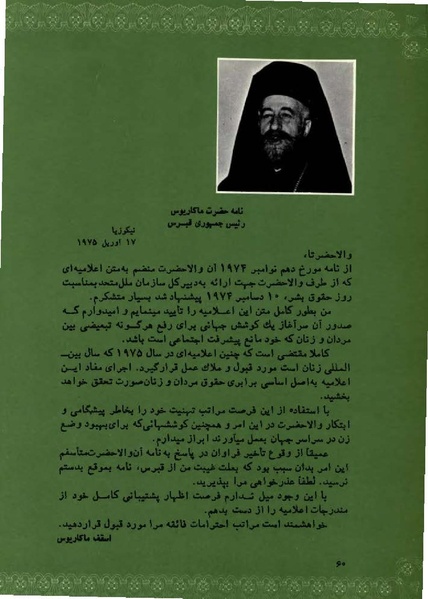 نامه حضرت ماکاریوس
رئیس جمهوری قبرس
نیکوزیا
۱۷ آوریل ۱۹۷۵
والاحضرتا،
از نامه مورخ دهم نوامبر ۱۹۷۴ آن والاحضرت منضم به‌متن اعلامیه‌ای
که از طرف والاحضرت جهت ارائه به‌دبیرکل سازمان ملل‌متحد بمناسبت
روز حقوق بشر، ۱۰ دسامبر ۱۹۷۴ پیشنهاد شد بسیار متشکرم.
من بطور کامل متن این اعلامیه را تأیید مینمایم و امیدوارم که
صدور آن سرآغاز یک کوشش جهانی برای رفع هرگونه تبعیضی بین
مردان و زنان که خود مانع پیشرفت اجتماعی است باشد.
کاملا مقتضی است که چنین اعلامیه‌ای در سال ۱۹۷۵ که سال بین‌ـ
المللی زنان است مورد قبول و ملاک عمل قرارگیرد. اجرای مفاد ایـن
اعلامیه به‌اصل اساسی برابری حقوق مردان و زنان‌صورت تحقق خواهد
بخشید.
با استفاده از این فرصت مراتب تهنیت خود را بخاطر پیشگامی و
ابتکار والاحضرت در این امر و همچنین کوششهائی‌که برای‌بهبود وضع
زن در سراسر جهان بعمل میآورند ابراز میدارم.
عمیقاً از وقوع تأخیر فراوان در پاسخ به‌نامه آن‌والاحضرت‌متأسفم
این امر بدان سبب بود که بعلت غیبت من از قبرس، نامه بموقع بدستم
نرسید. لطفاً عذرخواهی مرا بپذیرید.
با این وجود میل نـدارم فرصت اظهار پشتیبانی کامـل خود از
مندرجات اعلامیه را از دست بدهم.
خواهشمند است مراتب احترامات فائقه مرا مورد قبول قراردهید.
اسقف ماکاریوس
۶۰